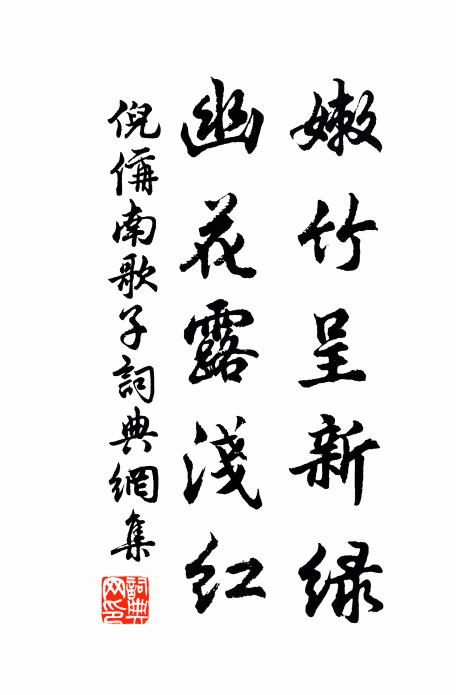 嫩竹呈新綠
幽花露淺紅
倪偁南歌子詞典網集
詞典网印